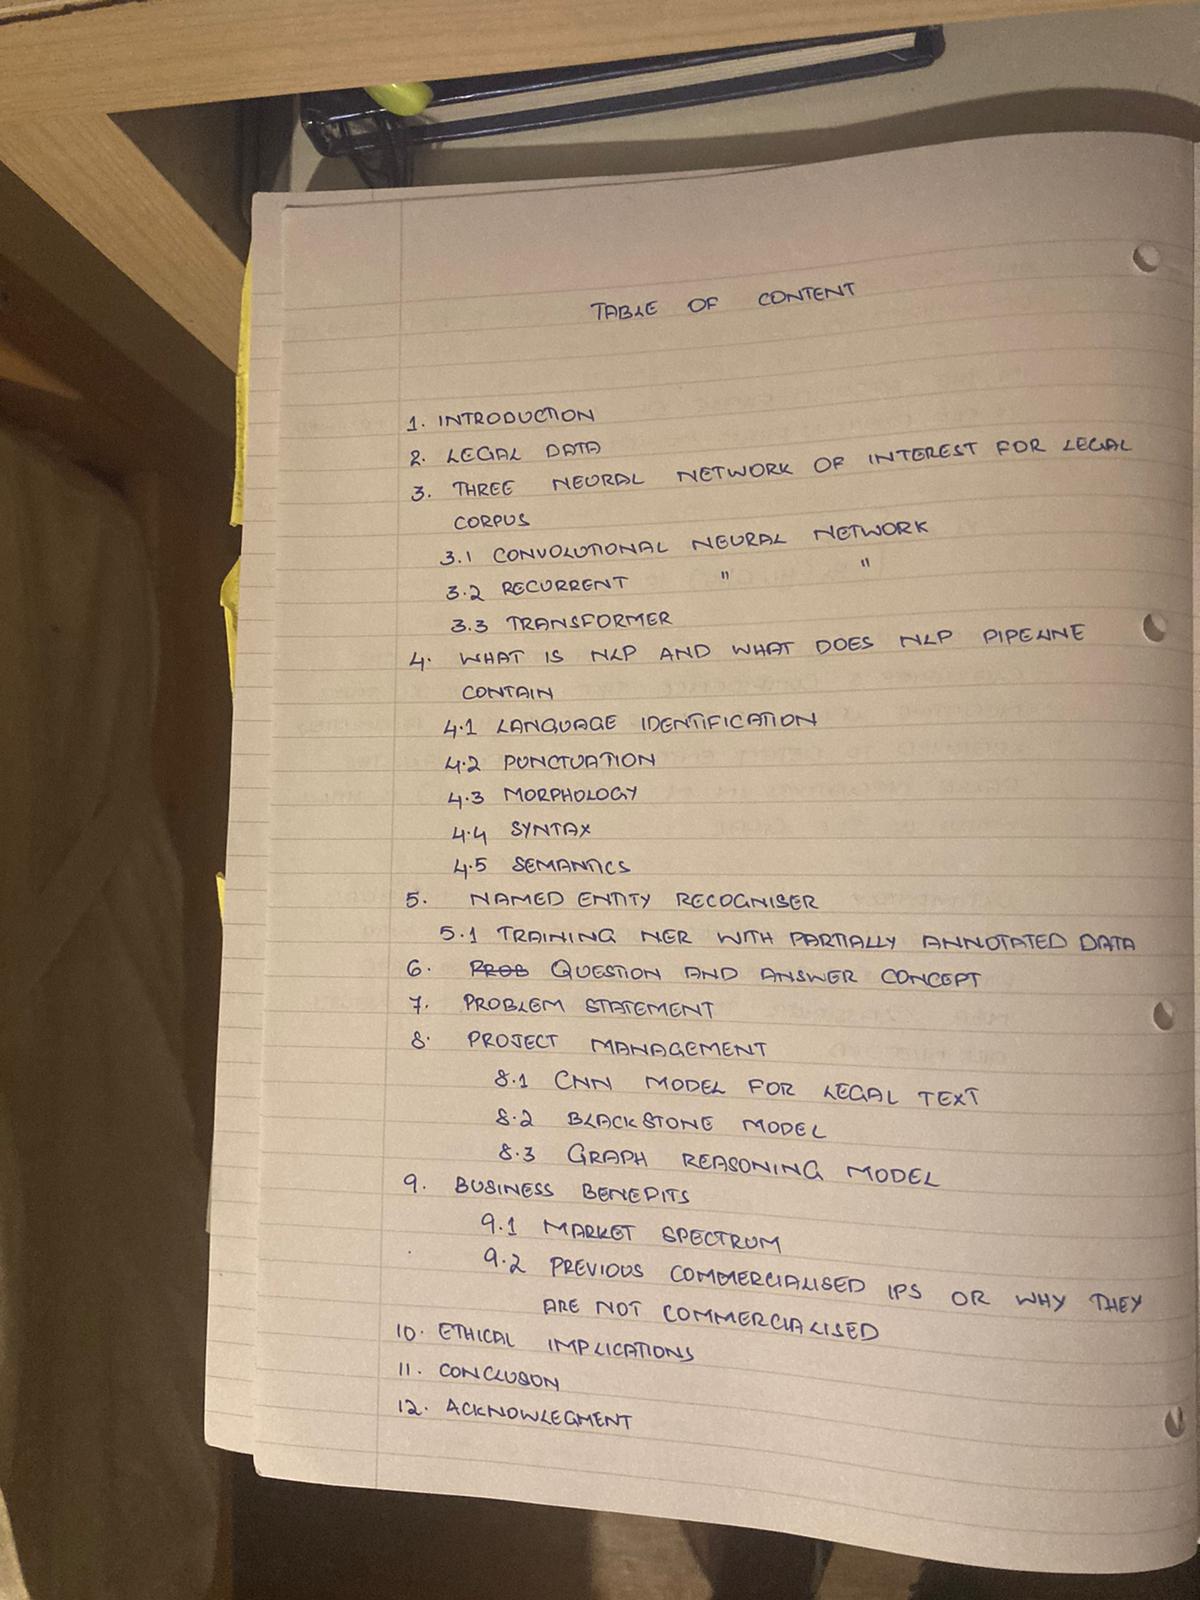 TABLE OF CONTENT
1. INTRODUCTION
2. LEGAL DATA
3. THREE NEURAL NETWORK OF INTEREST FOR LEGAL
CORPUS
3.1 CONVOLUTIONAL NEURAL NETWORK
3.2 RECURRENT " "
3.3 TRANSFORMER
4. WHAT IS NLP AND WHAT DOES NLP PIPELINE
CONTAIN
4.1 LANGUAGE IDENTIFICATION
4.2 PUNCTUATION
4.3 MORPHOLOGY
4.4 SYNTAX
4.5 SEMANTICS
5. NAMED ENTITY RECOGNISER
5.1 TRAINING NER WITH PARTIALLY ANNOTATED DATA
6. PROB QUESTION AND ANSWER CONCEPT
7. PROBLEM STATEMENT
8. PROJECT MANAGEMENT
8.1 CNN MODEL FOR LEGAL TEXT
8.2 BLACKSTONE MODEL
8.3 GRAPH REASONING MODEL
9. BUSINESS BENEFITS
9.1 MARKET SPECTRUM
9.2 PREVIOUS COMMERCIALISED IPS OR WHY THEY
ARE NOT COMMERCIALISED
10. ETHICAL IMPLICATIONS
11. CONCLUSON
12. ACKNOWLEGMENT